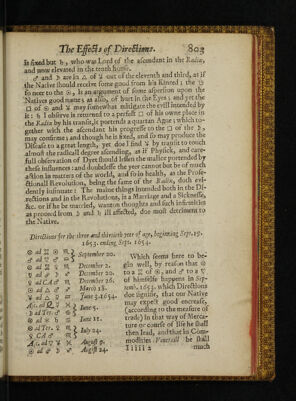 The Effects of Directions. 803
is fixed but ♄, who was Lord of the ascendant in the Radix,
and now elevated in the tenth house.
♂ and ☽ are in △ of ♃ out of the eleventh and third, as if
the Native should receive some good from his Kinred: the ☽
so neer to the ☉, is an argument of some aspersion upon the
Natives good name; as also, of hurt in the Eyes; and yet the
□ of ☉ and ♃ may somewhat mitigate the evill intended by
it: ♄ I observe is returned to a perfect □ of his owne place in
the Radix by his transit, it portends a quartan Ague; which to-
gether with the ascendant his progresse to the □ or the ☽,
may confirme; and though he is fixed, and so may produce the
Disease to a great length, yet doe I find ♃ by transit to touch
almost the radicall degree ascending, as if Physick, and care-
full observation of Dyet should lessen the malice portended by
these influences: and doubtlesse the yeer cannot be but of much
action in matters of the world, and so in health, as the Profe-
ctionall Revolution, being the same of the Radix, doth evi-
dently insinuate: The maine things intended both in the Di-
rections and in the Revolutions, is a Marriage and a Sicknesse,
&c. or if he be married, wanton thoughts and such infirmities
as proceed from ☽ and ♄ ill affected, doe most detriment to
the Native.
Directions for the three and thirtieth yeer of age, beginning Sept. 19.
1653. ending Sept. 1654.
September 20.
December 2.
December 20.
December 26.
March 18.
June 3. 1654.
June 5.
June 11.
July 24.
August 9.
August 24.
Which seems here to be-
gin well, by reason that ☉
to a ♊ of ☉, and ♂ to a ▽
of himselfe happens in Sep-
temb. 1653. which Directions
doe signifie, that our Native
may expect good encrease,
(according to the measure of
trade) in that way of Merca-
ture or course of life he shall
then lead, and that in Com-
modities Venereall he shall
Iiiii 2 much